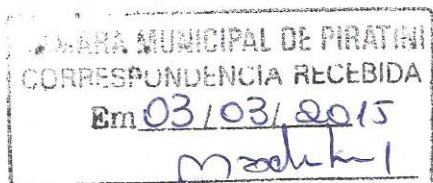 CÂMARA MUNICIPAL DE PIRATINI
CORRESPONDÊNCIA RECEBIDA
Em 03/03/2015